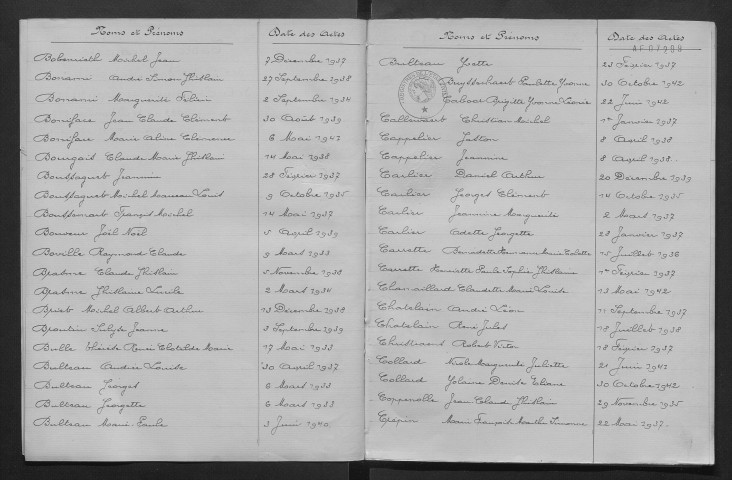 Noms et Prénoms Date des Actes
Michel Jean 7 Décembre 1937
Bonami André Simon Ghislain 27 Septembre 1938
Bonami Marguerite 2 Septembre 1934
Boniface Jean Claude Clément 30 Août 1939
Boniface Marie Aline Clémence 6 Mai 1943
Bourgois Claude Marie Ghislain 14 Mai 1938
Boussaguet Jeannine 28 Février 1937
Boussaguet Michel Louis 9 Octobre 1935
François Michel 14 Mai 1937
Bouveur Joël Noël 5 Avril 1939
Boville Raymond Claude 9 Mars 1933
Brabme Claude Ghislain 5 Novembre 1938
Brabme Ghislaine Lucile 2 Mars 1934
Michel Albert Arthur 13 Décembre 1938
Jeanne 3 Septembre 1939
Bulle Renée Clotilde Marie 17 Mai 1933
Bulteau Andrée Louise 30 Avril 1937
Bulteau Georges 6 Mars 1933
Bulteau Georgette 6 Mars 1933
Bulteau Marie Paule 3 Juin 1940
Noms et Prénoms Date des Actes
AF 07298
Bulteau Yvette 23 Février 1937
Buysschaert Paulette Yvonne 30 Octobre 1942
Cabour Brigitte Yvonne 22 Juin 1942
Christian Michel 1er Janvier 1937
Cappelier Gaston 8 Avril 1938
Cappelier Jeannine 8 Avril 1938
Carlier Daniel Arthur 20 Décembre 1939
Carlier Georges Clément 14 Octobre 1935
Carlier Jeannine Marguerite 2 Mars 1937
Carlier Odette Georgette 28 Janvier 1937
Carrette Bernadette Marie Colette 15 Juillet 1936
Carrette Henriette Paule Sophie Ghislaine 1er Février 1937
Chemaillard Claudette Marie Louise 13 Mai 1942
Chatelain André Léon 11 Septembre 1937
Chatelain René Jules 18 Juillet 1938
Robert Victor 18 Février 1937
Collard Nicole Marguerite Juliette 21 Juin 1943
Collard Yolaine Denise Eliane 30 Octobre 1942
Coppenolle Jean Claude Ghislain 29 Novembre 1935
Crépin Marie François Marthe Simonne 22 Mai 1937